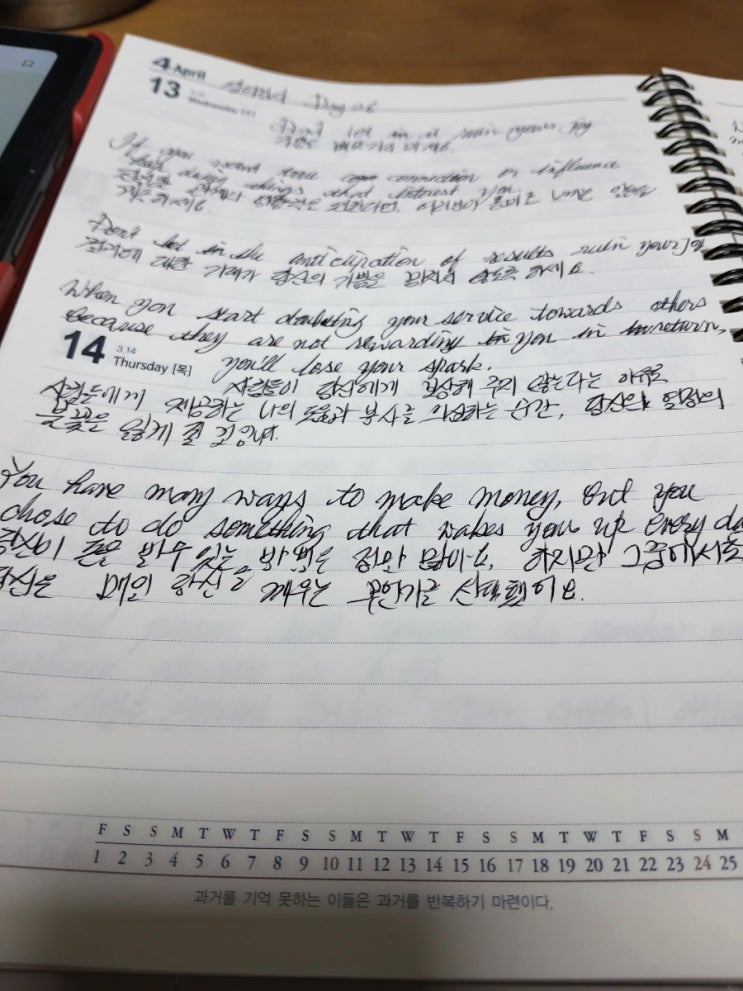 4 April
13
Wednesday [수]
Day 26
Don't let
ruin your joy
If you want true connection or influence
start doing things that interest you.
Don't let in the anticipation of results ruin your joy
결과에 대한 기대가 당신의 기쁨을 망치지 않도록 하세요.
When you start doubting your service towards others
because they are not rewarding you in return,
14
3.14
Thursday [목]
you'll lose your spark.
사람들이 당신에게 보상해 주지 않는다는 이유로
사람들에게 제공하는 나의 도움과 봉사를 의심하는 순간, 당신의 열정의
불꽃은 잃게 될 것입니다.
You have many ways to make money, and you
chose to do something that wakes you up every da
당신이 돈을 벌 수 있는 방법은 정말 많아요. 하지만 그중에서도
당신은 매일 당신을 깨우는 무언가를 선택했어요.
F S S M T W T F S S M T W T F S S M T W T F S S M
1 2 3 4 5 6 7 8 9 10 11 12 13 14 15 16 17 18 19 20 21 22 23 24 25
과거를 기억 못하는 이들은 과거를 반복하기 마련이다.